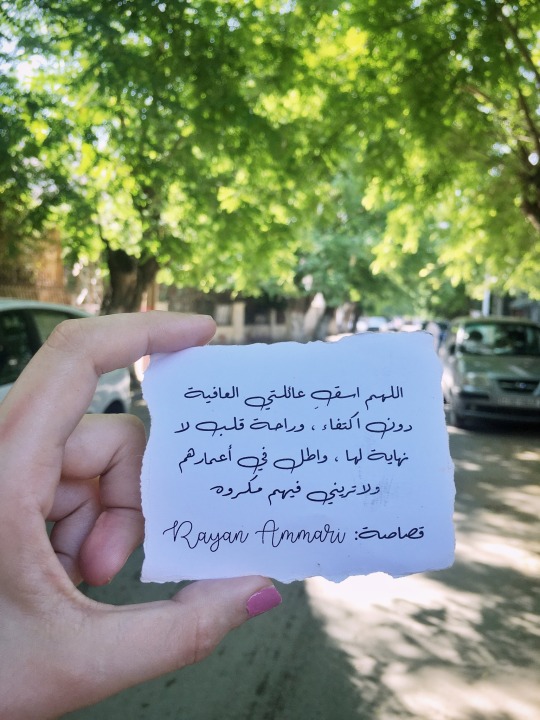 اللهم اسقِ عائلتي العافية
دون اكتفاء ، وراحة قلب لا
نهاية لها ، واطل في أعمارهم
ولاتريني فيهم مكروه
قصاصة: Rayan Ammari